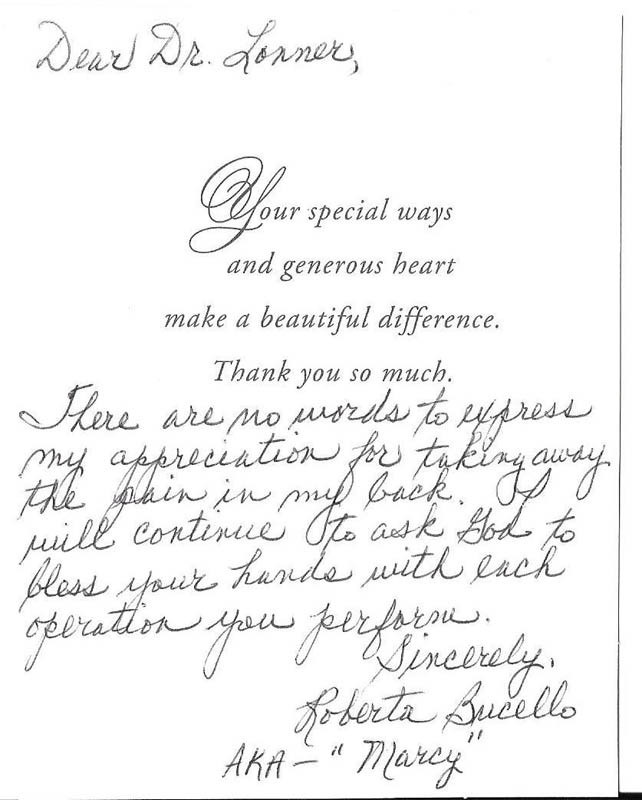 Dear Dr. Lonner,
Your special ways
and generous heart
make a beautiful difference.
Thank you so much.
There are no words to express
my appreciation for taking away
the pain in my back. I
will continue to ask God to
bless your hands with each
operation you perform.
Sincerely,
Roberta Bucello
AKA – "Marcy"